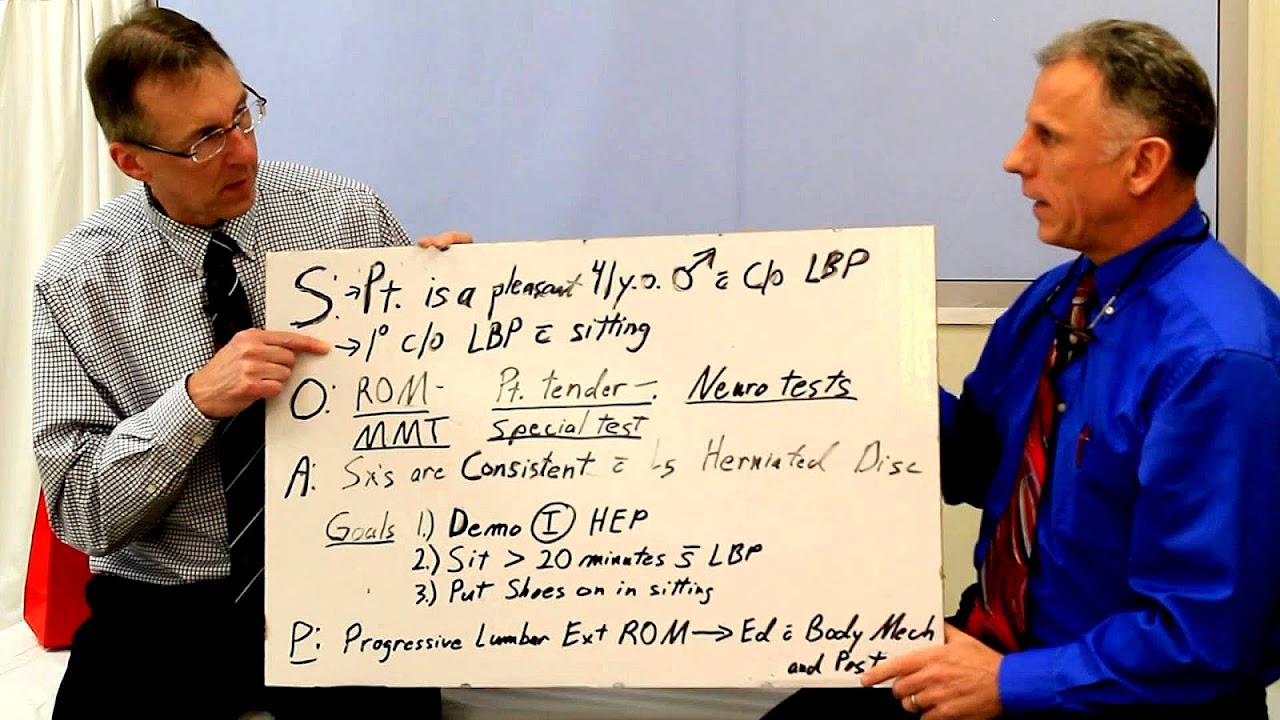 S: → Pt. is a pleasant 41 y.o. ♂ c̄ c/o LBP
→ 1° c/o LBP c̄ sitting
O: ROM- Pt. tender-. Neuro tests
MMT special test
A: Sx's are Consistent c̄ L5 Herniated Disc
Goals 1.) Demo Ⓘ HEP
2.) Sit > 20 minutes s̄ LBP
3.) Put Shoes on in sitting
P: Progressive Lumbar Ext ROM → Ed c̄ Body Mech
and Post